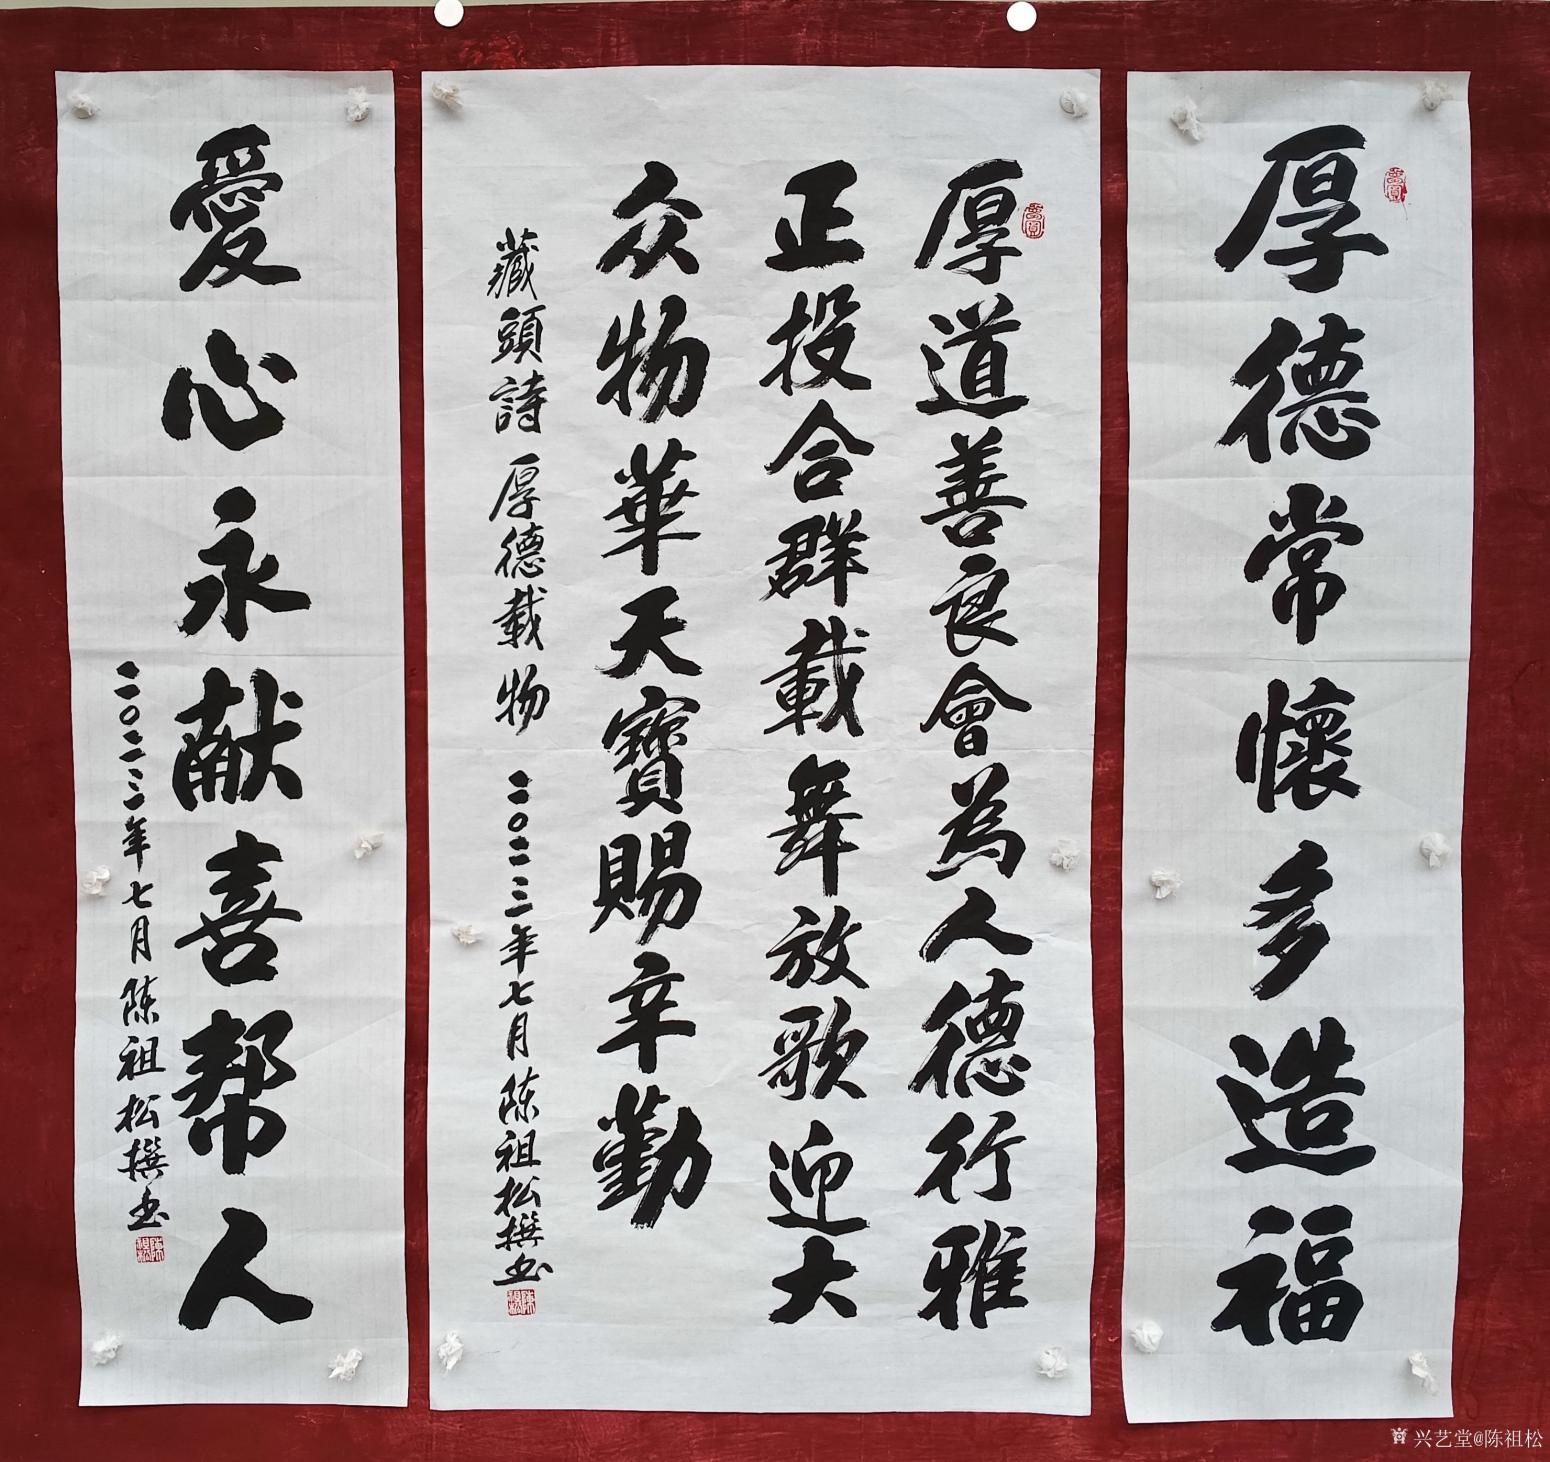 厚德常懷多造福
厚道善良會為人德行雅
正投合群載舞放歌迎大
众物華天寶賜辛勤
藏頭詩 厚德載物 二〇二三年七月陈祖松撰书
愛心永献喜帮人
二〇二三年七月陈祖松撰书
兴艺堂@陈祖松